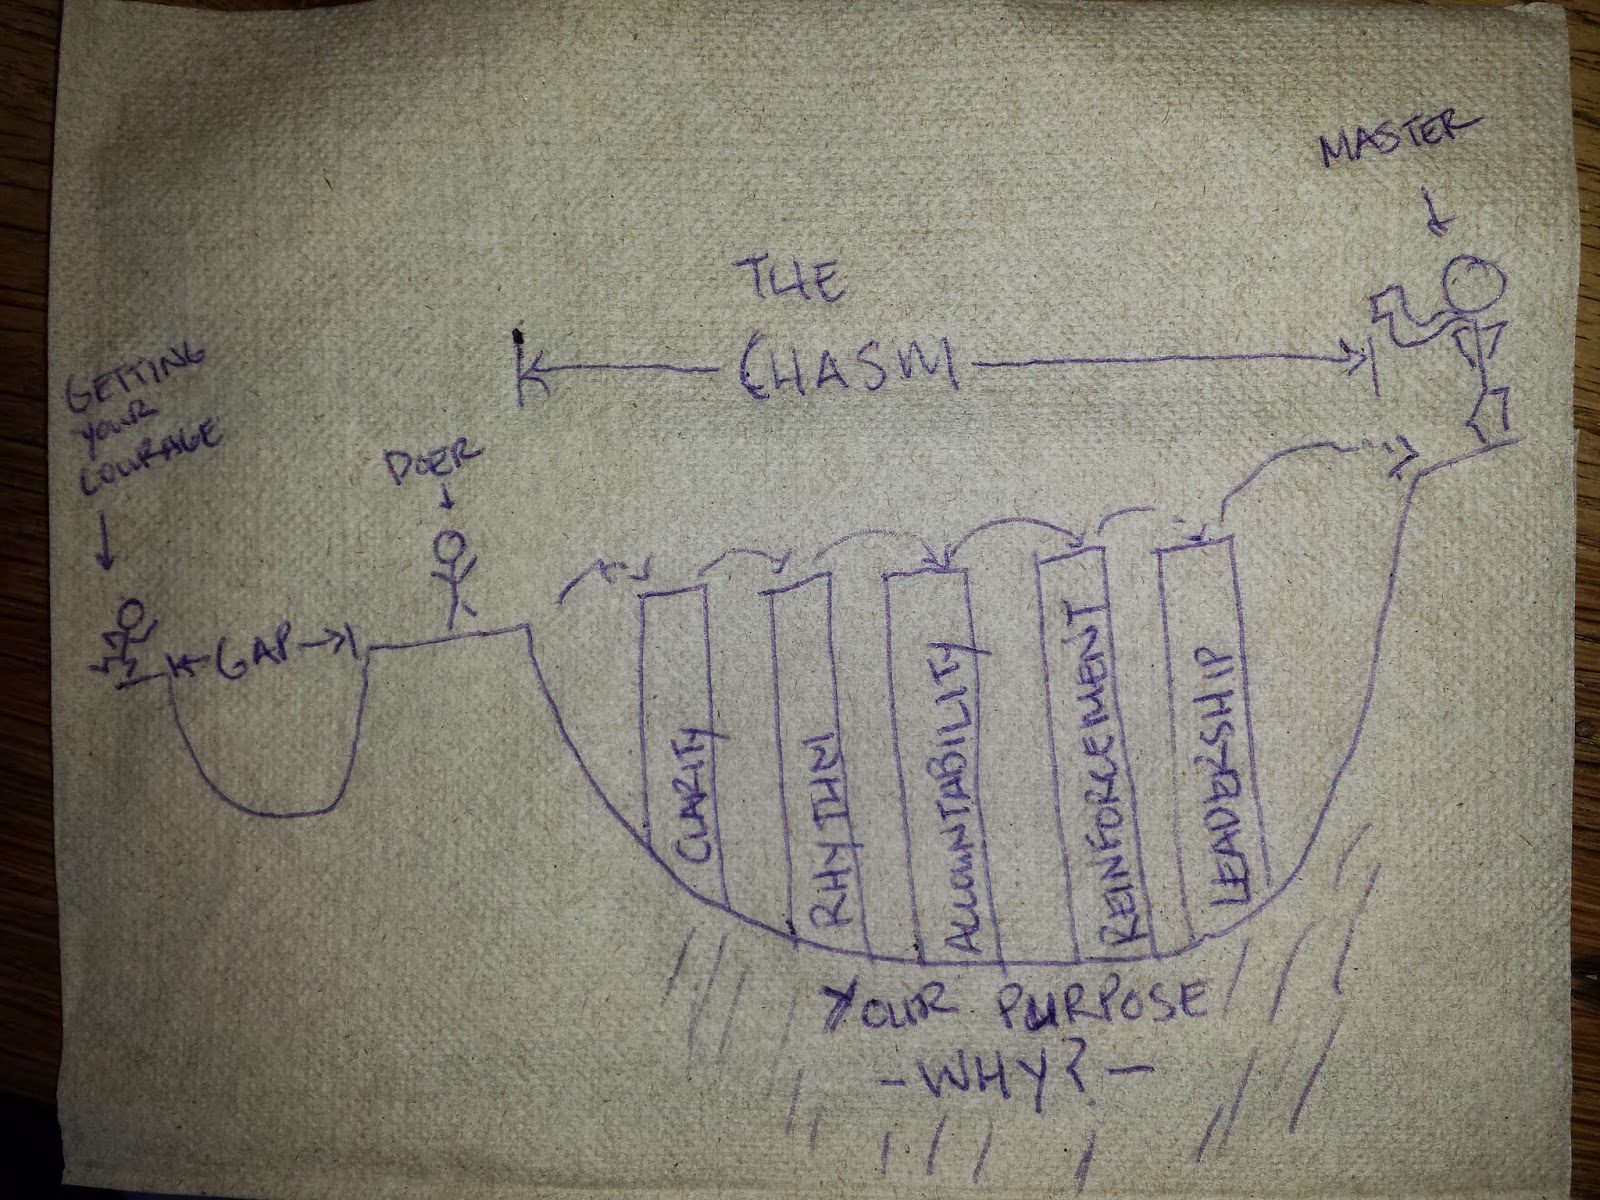 MASTER
THE
CHASM
GETTING
YOUR
COURAGE
DOER
GAP
CLARITY
RHYTHM
ACCOUNTABILITY
REINFORCEMENT
LEADERSHIP
YOUR PURPOSE
- WHY? -